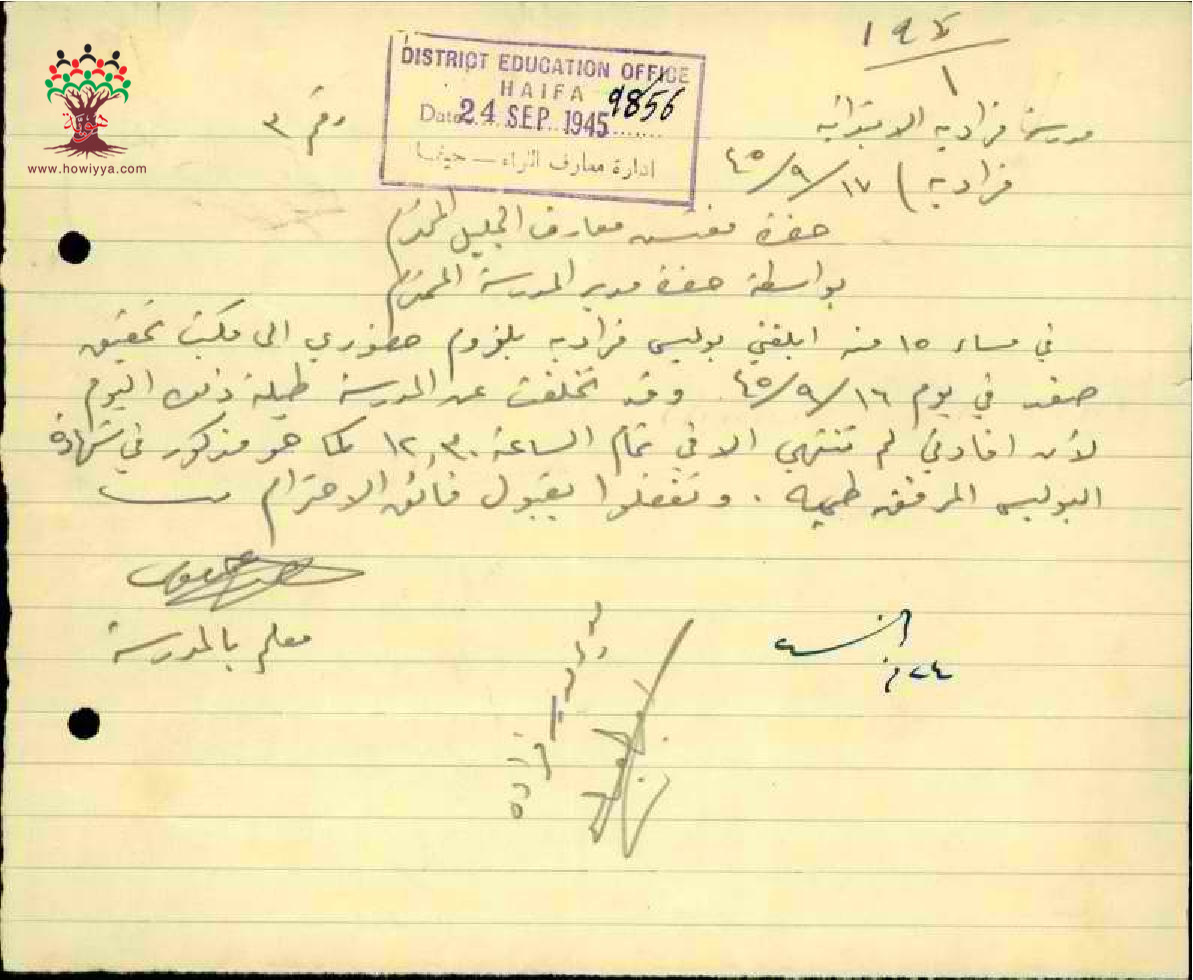 ١٩٤
١
DISTRICT EDUCATION OFFICE
HAIFA
9856
Date 24 SEP. 1945
ادارة معارف اللواء — حيفا
هوية
www.howiyya.com
مدرسة فراديه الابتدائية
رقم ٣
فراديه ) ١٧/٩/٤٥
حضرة مفتش معارف الجليل المحترم
بواسطة حضرة مدير المدرسة المحترم
في مساء ١٥ منه ابلغني بوليس فراديه بلزوم حضوري الى مكتب تحقيق
صفد في يوم ١٦/٩/٤٥ وقد تخلفت عن المدرسة طيلة ذلك اليوم
لأن افادتي لم تنتهي الا في تمام الساعة ١٢,٣٠ كما هو مذكور في شهادة
البوليس المرفقة طيه . وتفضلوا بقبول فائق الاحترام
معلم بالمدرسة
٢٤